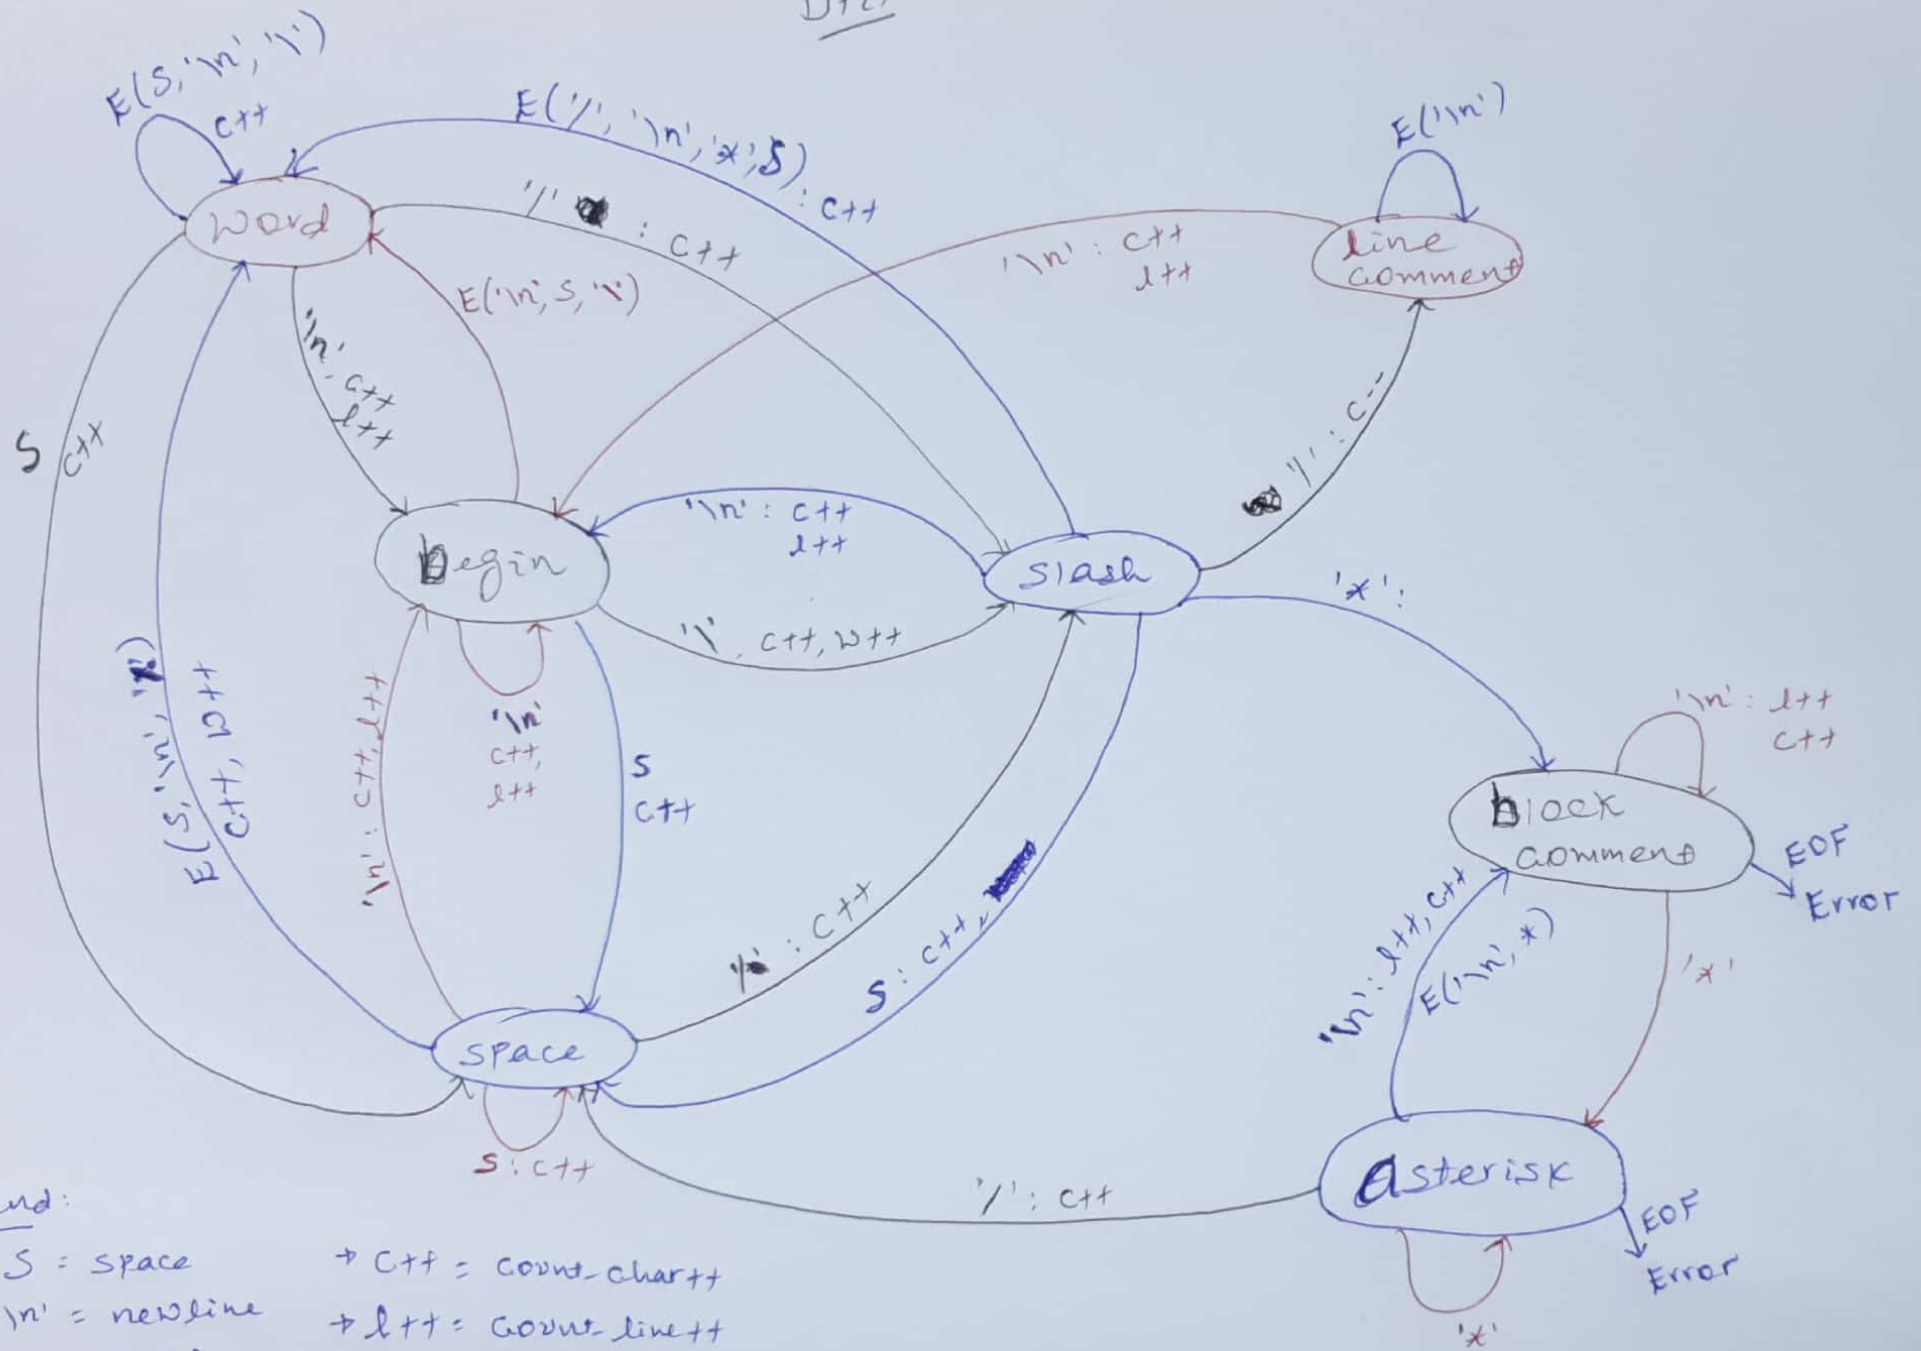 E(S, '\n', '\')
C++
E('/', '\n', '*', S) : C++
'/' : C++
E('\n')
Word
line
comment
'\n' : C++
l++
E('\n', S, '\')
'\n', C++
l++
S
C++
'/' : C--
'\n' : C++
l++
begin
Slash
'*' :
'\', C++, W++
E(S, '\n',
C++, W++
'\n' : C++, l++
'\n'
C++,
l++
S
C++
'\n' : l++
C++
block
comment
EOF
Error
: C++
S : C++,
'\n' : l++, C++
E('\n', *)
'*'
space
S : C++
'/' : C++
Asterisk
EOF
Error
'*'
S = space
'\n' = newline
→ C++ = count-char++
→ l++ = count-line++